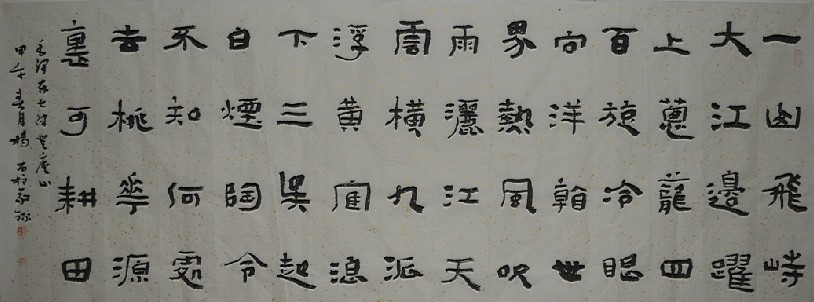 一山飛峙
大江邊躍
上蔥蘢四
百旋冷眼
向洋看世
界熱風吹
雨灑江天
雲橫九派
浮黃鶴浪
下三吳起
白煙陶令
不知何處
去桃華源
裏可耕田
毛澤东七律登廬山
甲午春月楊石